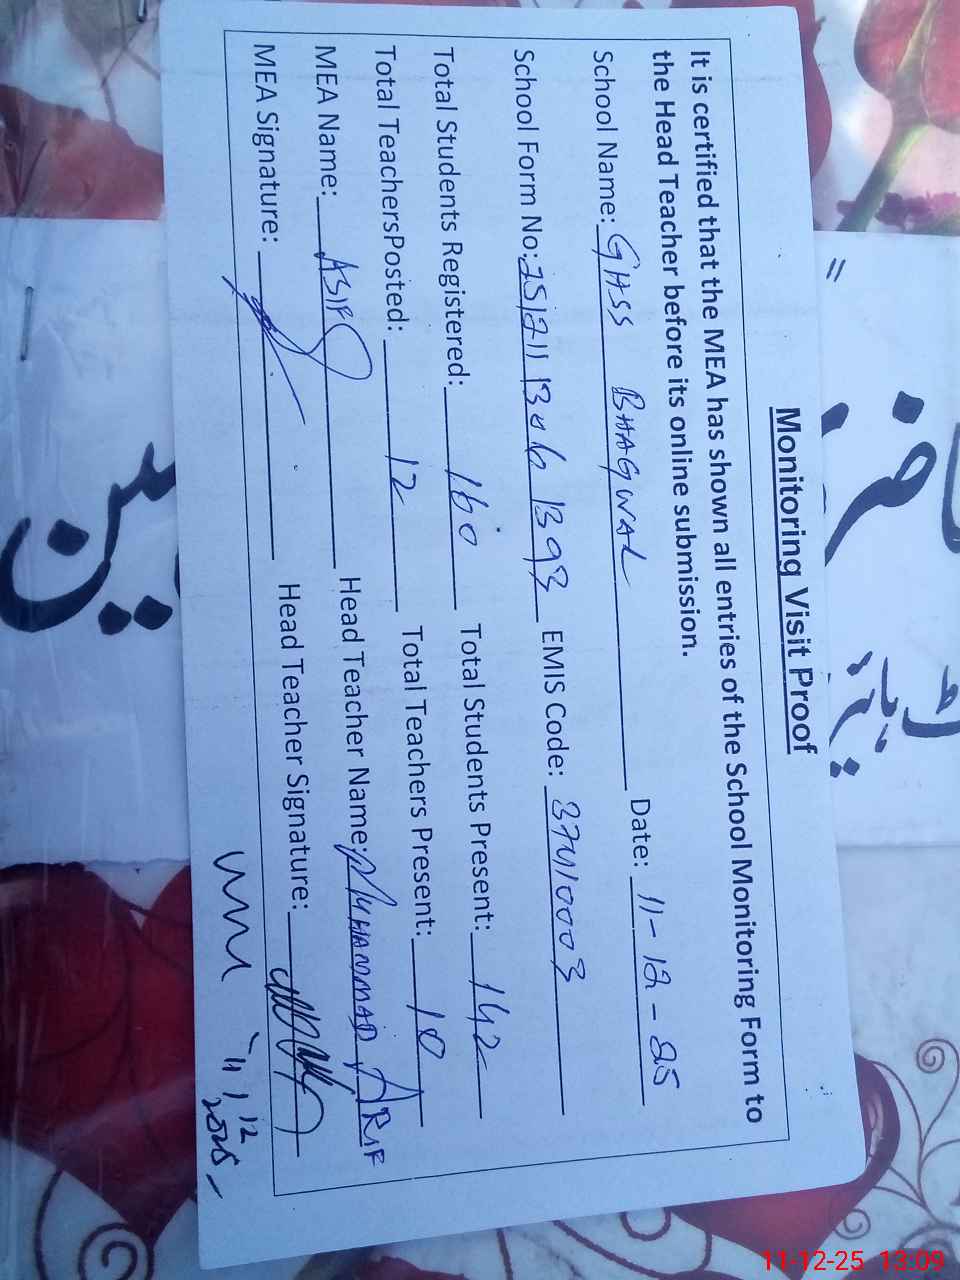 Monitoring Visit Proof
It is certified that the MEA has shown all entries of the School Monitoring Form to
the Head Teacher before its online submission.
School Name: GHSS BHAGWAL Date: 11-12-25
School Form No: EMIS Code: 37110003
Total Students Registered: 160 Total Students Present: 142
Total TeachersPosted: 12 Total Teachers Present: 10
MEA Name: ASIF Head Teacher Name: MUHAMMAD ARIF
MEA Signature: Head Teacher Signature:
11/12
2025
11-12-25 13:09